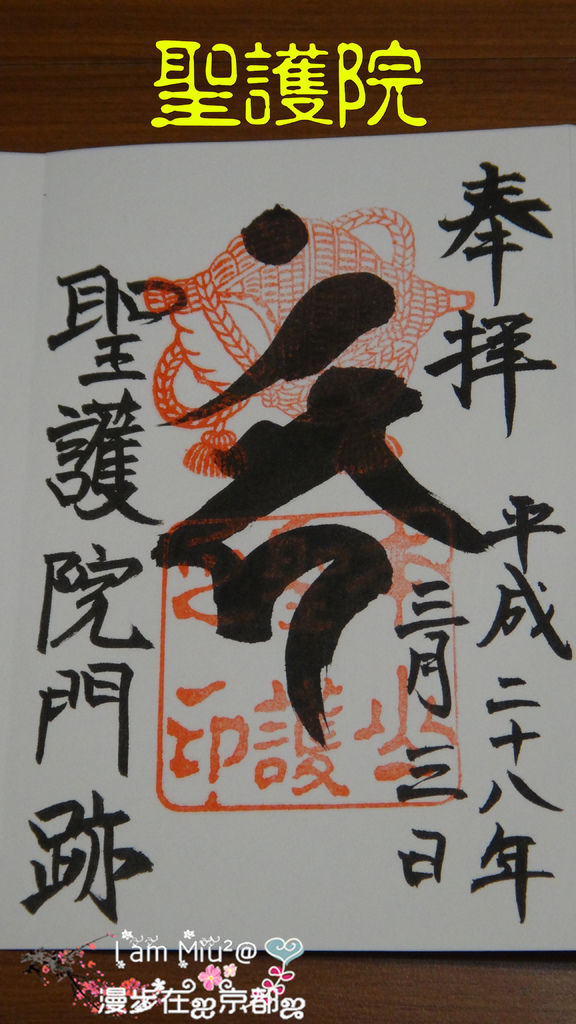 聖護院
奉拝 平成二十八年
三月三日
聖護院門跡
I am Miu²@
漫步在ஐ京都ஐ